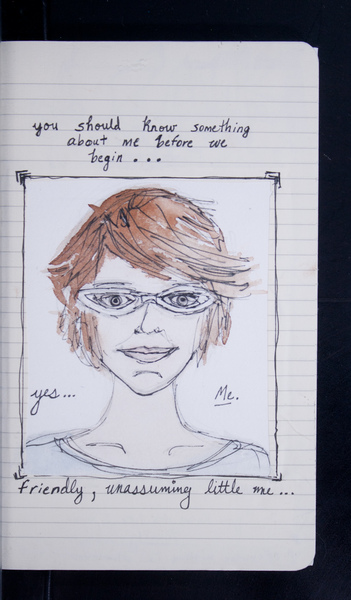 you should know something
about me before we
begin...
yes...
Me.
friendly, unassuming little me...